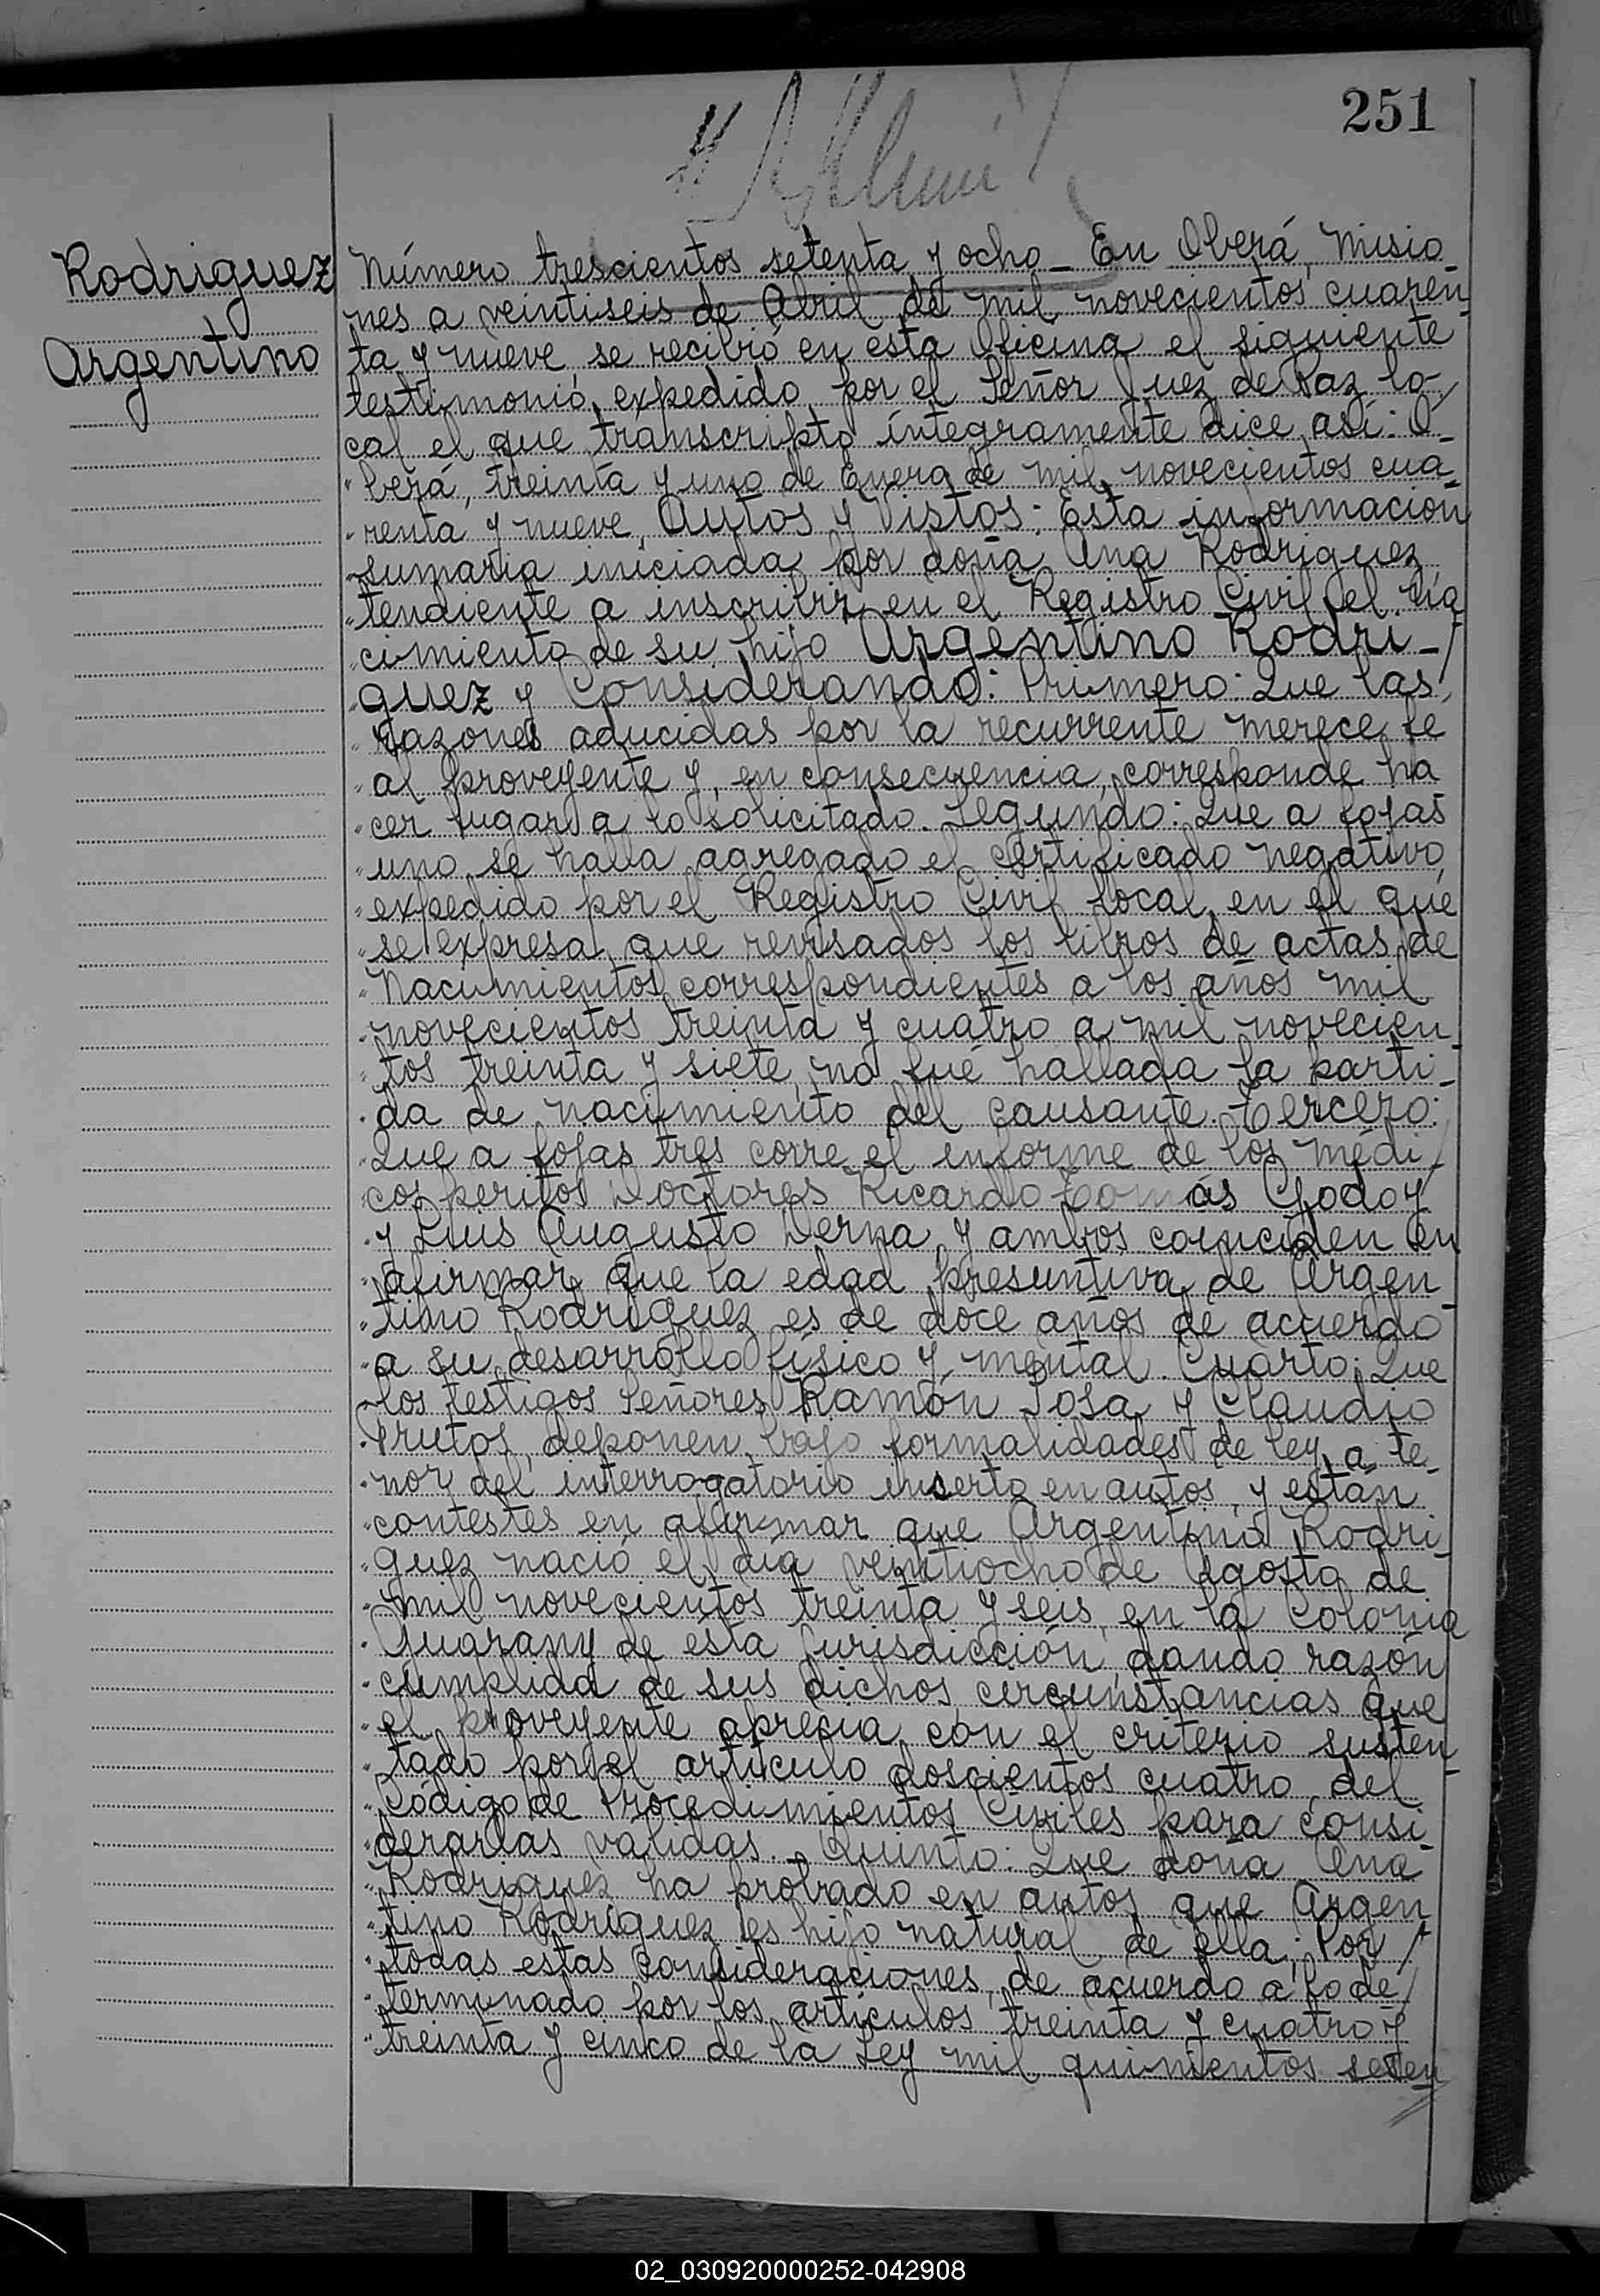 251
Rodriguez
Argentino
Número trescientos setenta y ocho_ En Oberá, Misio_
nes a veintiseis de Abril de mil novecientos cuaren_
ta y nueve, se recibió en esta Oficina el siguiente
testimonio, expedido por el Señor Juez de Paz lo-/
cal el que transcripto íntegramente dice así: O_
"berá, treinta y uno de Enero de mil novecientos cua_
"renta y nueve, Autos y Vistos: Esta información
"sumaria iniciada por doña Ana Rodriguez
"tendiente a inscribir en el Registro Civil el na
"cimiento de su hijo Argentino Rodri_/
"guez y Considerando: Primero: Que las
"razones aducidas por la recurrente merece fe
"al proveyente y, en consecuencia, corresponde ha
"cer lugar a lo solicitado. Segundo: Que a fojas
"uno se halla agregado el certificado negativo,
"expedido por el Registro Civil local, en el que
"se expresa que revisados los libros de actas de
"Nacimientos correspondientes a los años mil
"novecientos treinta y cuatro a mil novecien_
"tos treinta y siete, no fué hallada la parti_
"da de nacimiento del causante. Tercero:
"Que a fojas tres corre el informe de los médi/
"cos peritos Doctores Ricardo Tomás Godoy
"y Luis Augusto Derna y ambos coinciden en
"afirmar que la edad presuntiva de Argen_
"tino Rodriguez es de doce años de acuerdo
"a su desarrollo físico y mental. Cuarto: Que
"los testigos Señores Ramón Sosa y Claudio
"Frutos, deponen bajo formalidades de ley a te_
"nor del interrogatorio inserto en autos, y están
"contestes en afirmar que Argentino Rodri_
"guez nació el día veintiocho de Agosto de
"mil novecientos treinta y seis, en la Colonia
"Guarany de esta jurisdicción, dando razón
"cumplida de sus dichos, circunstancias que
"el proveyente aprecia con el criterio susten_
"tado por el artículo doscientos cuatro del
"Código de Procedimientos Civiles para consi_
"derarlas válidas._ Quinto: Que doña Ana
"Rodriguez ha probado en autos que Argen_
"tino Rodriguez es hijo natural de ella; Por /
"todas estas consideraciones, de acuerdo a lo de/
"terminado por los artículos treinta y cuatro y
"treinta y cinco de la Ley mil quinientos seten
02_030920000252-042908